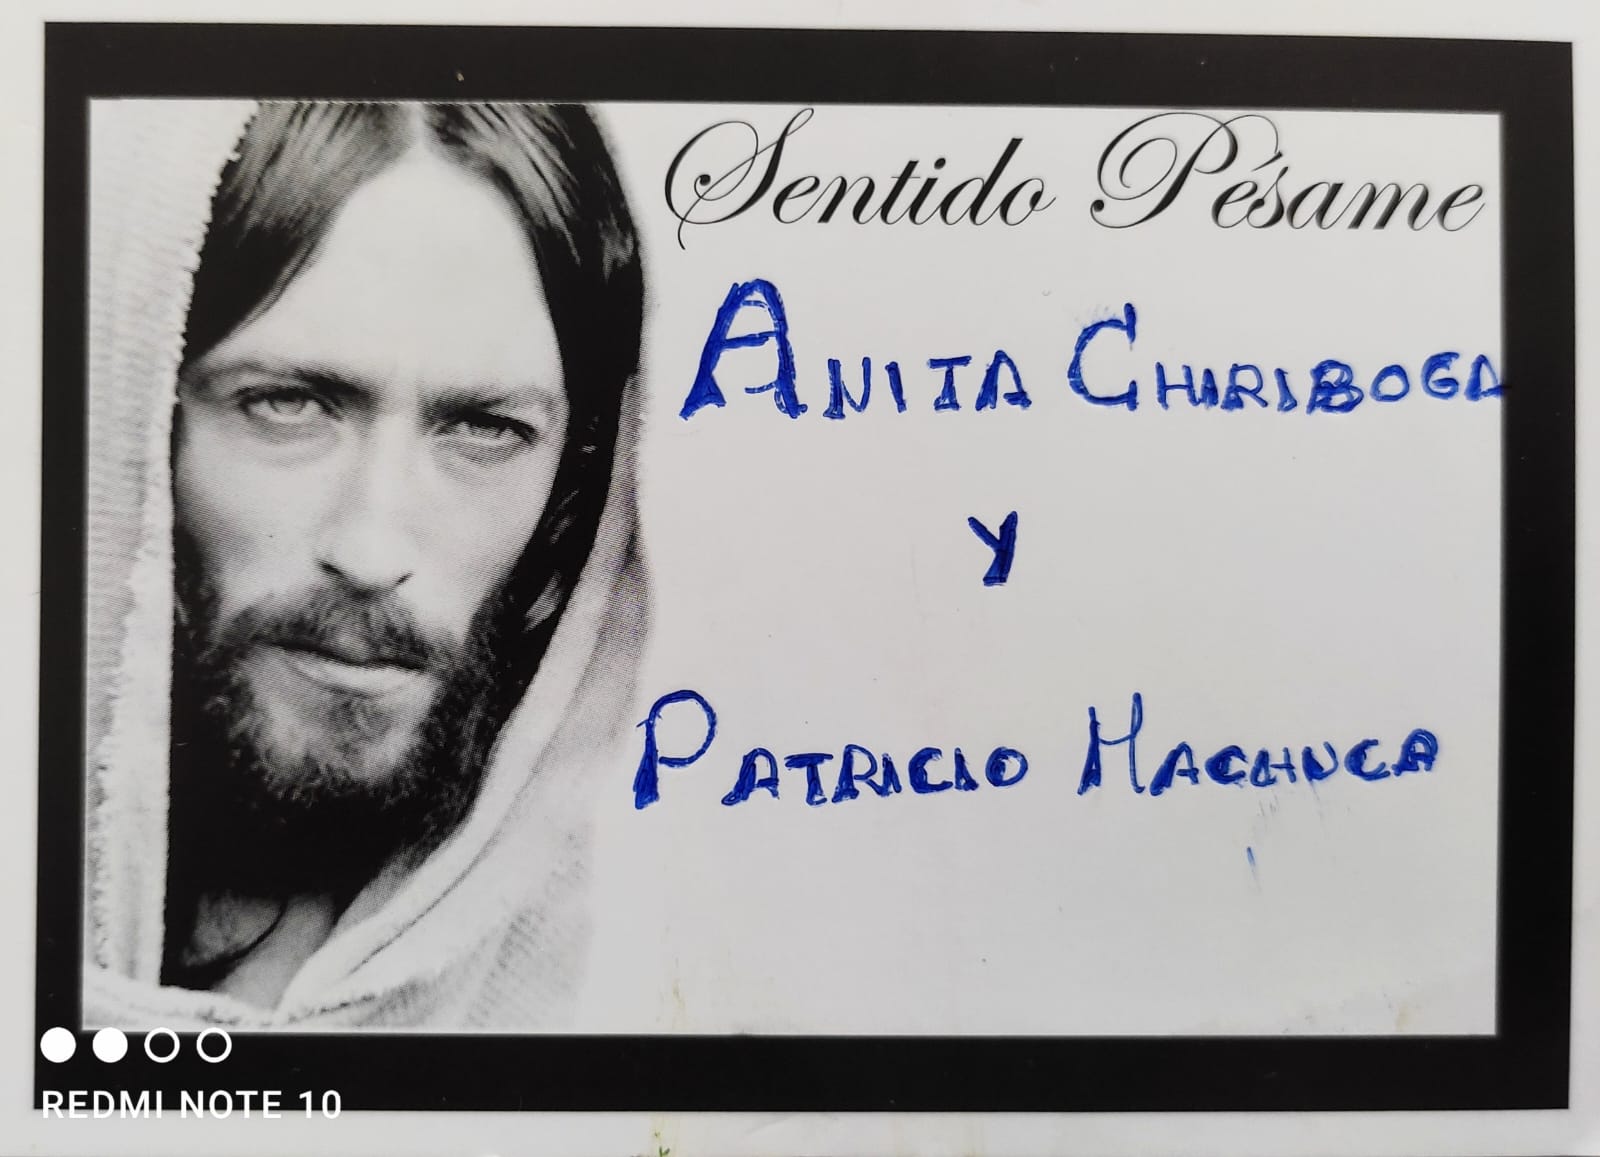 Sentido Pésame
ANITA CHIRIBOGA
Y
PATRICIO MACHUCA
REDMI NOTE 10